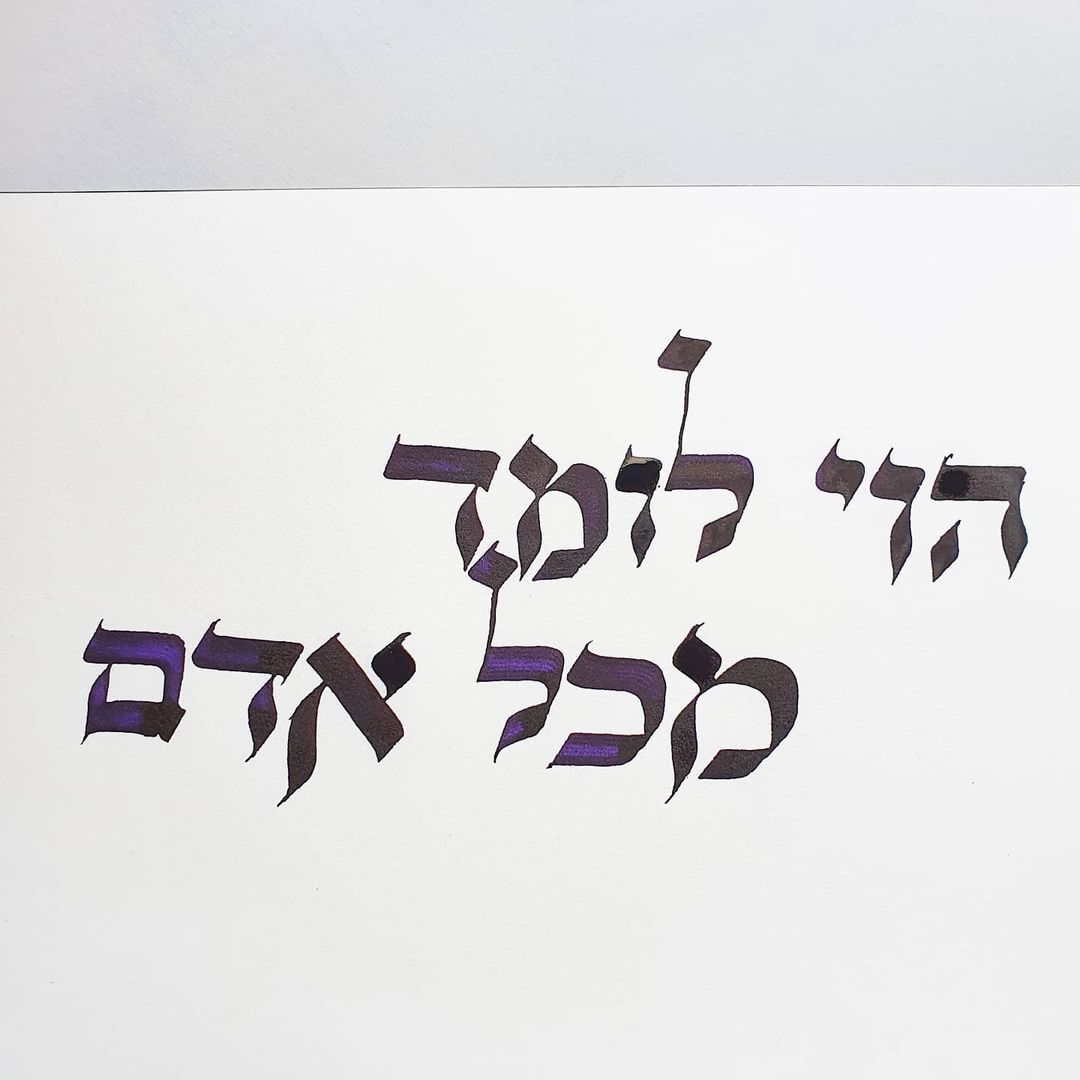 הוי לומד
מכל אדם